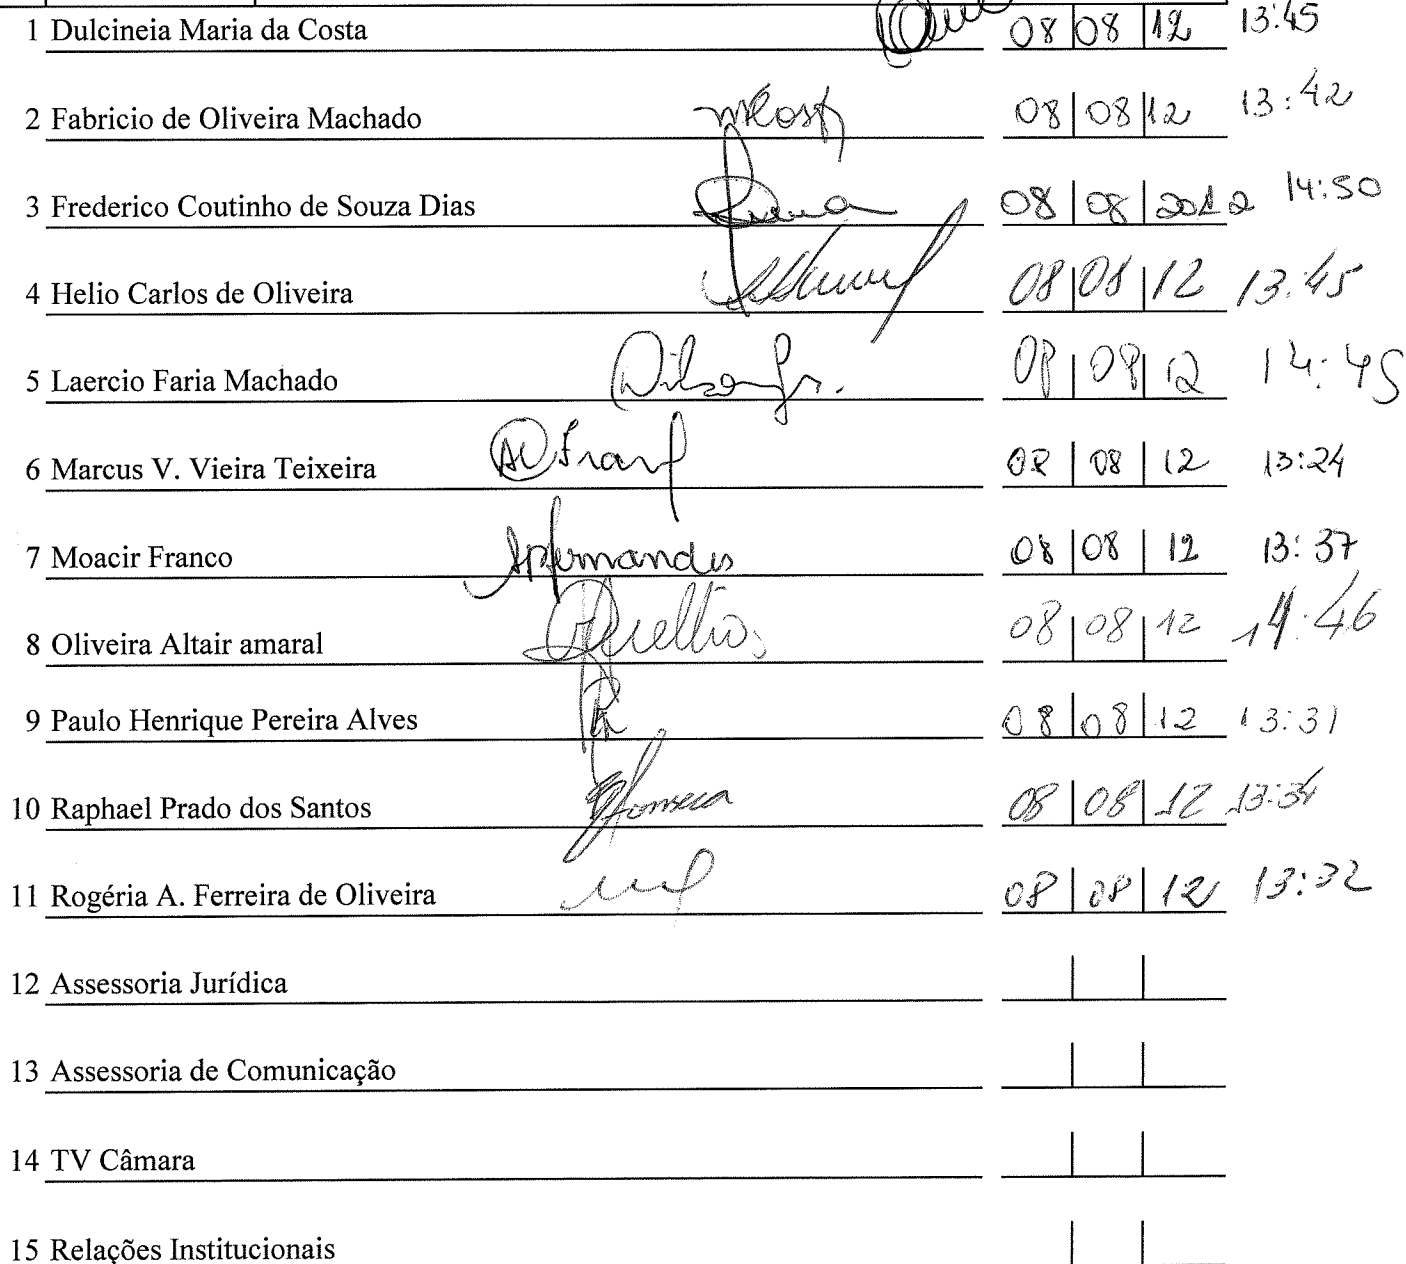 1 Dulcineia Maria da Costa 08 08 12 13:45
2 Fabricio de Oliveira Machado 08 08 12 13:42
3 Frederico Coutinho de Souza Dias 08 08 2012 14:50
4 Helio Carlos de Oliveira 08 08 12 13:45
5 Laercio Faria Machado Dilson Jr. 08 08 12 14:45
6 Marcus V. Vieira Teixeira 08 08 12 13:24
7 Moacir Franco Apfernandes 08 08 12 13:37
8 Oliveira Altair amaral 08 08 12 14:46
9 Paulo Henrique Pereira Alves 08 08 12 13:31
10 Raphael Prado dos Santos 08 08 12 13:34
11 Rogéria A. Ferreira de Oliveira 08 08 12 13:32
12 Assessoria Jurídica
13 Assessoria de Comunicação
14 TV Câmara
15 Relações Institucionais